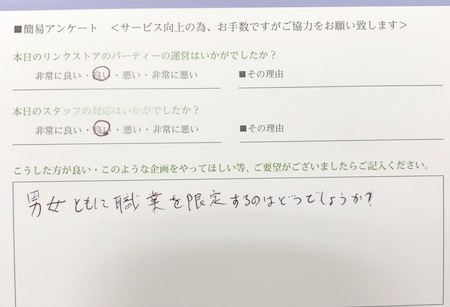 ■簡易アンケート　＜サービス向上の為、お手数ですがご協力をお願い致します＞
本日のリンクストアのパーティーの運営はいかがでしたか？
非常に良い・良い・悪い・非常に悪い　■その理由
本日のスタッフの対応はいかがでしたか？
非常に良い・良い・悪い・非常に悪い　■その理由
こうした方が良い・このような企画をやってほしい等、ご要望がございましたらご記入ください。
男女ともに職業を限定するのはどうでしょうか？